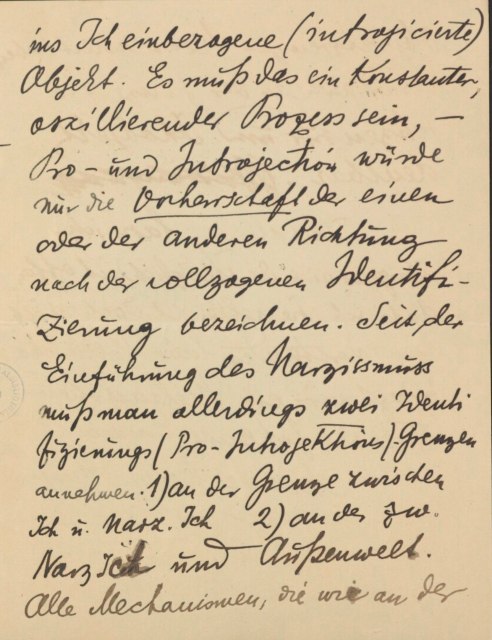 ins Ich einbezogene (introjicierte)
Objekt. Es muß das ein Konstanter,
oszillierender Prozess sein, –
Pro- und Introjection würde
nur die Vorherrschaft der einen
oder der anderen Richtung
nach der vollzogenen Identifi-
zierung bezeichnen. Seit der
Einführung des Narzissmuss
muß man allerdings zwei Identi
fizierungs (Pro-Introjektions)-Grenzen
annehmen. 1) an der Grenze zwischen
Ich u. Narz. Ich 2) an der zw.
Narz Ich und Außenwelt.
Alle Mechanismen, die wir an der